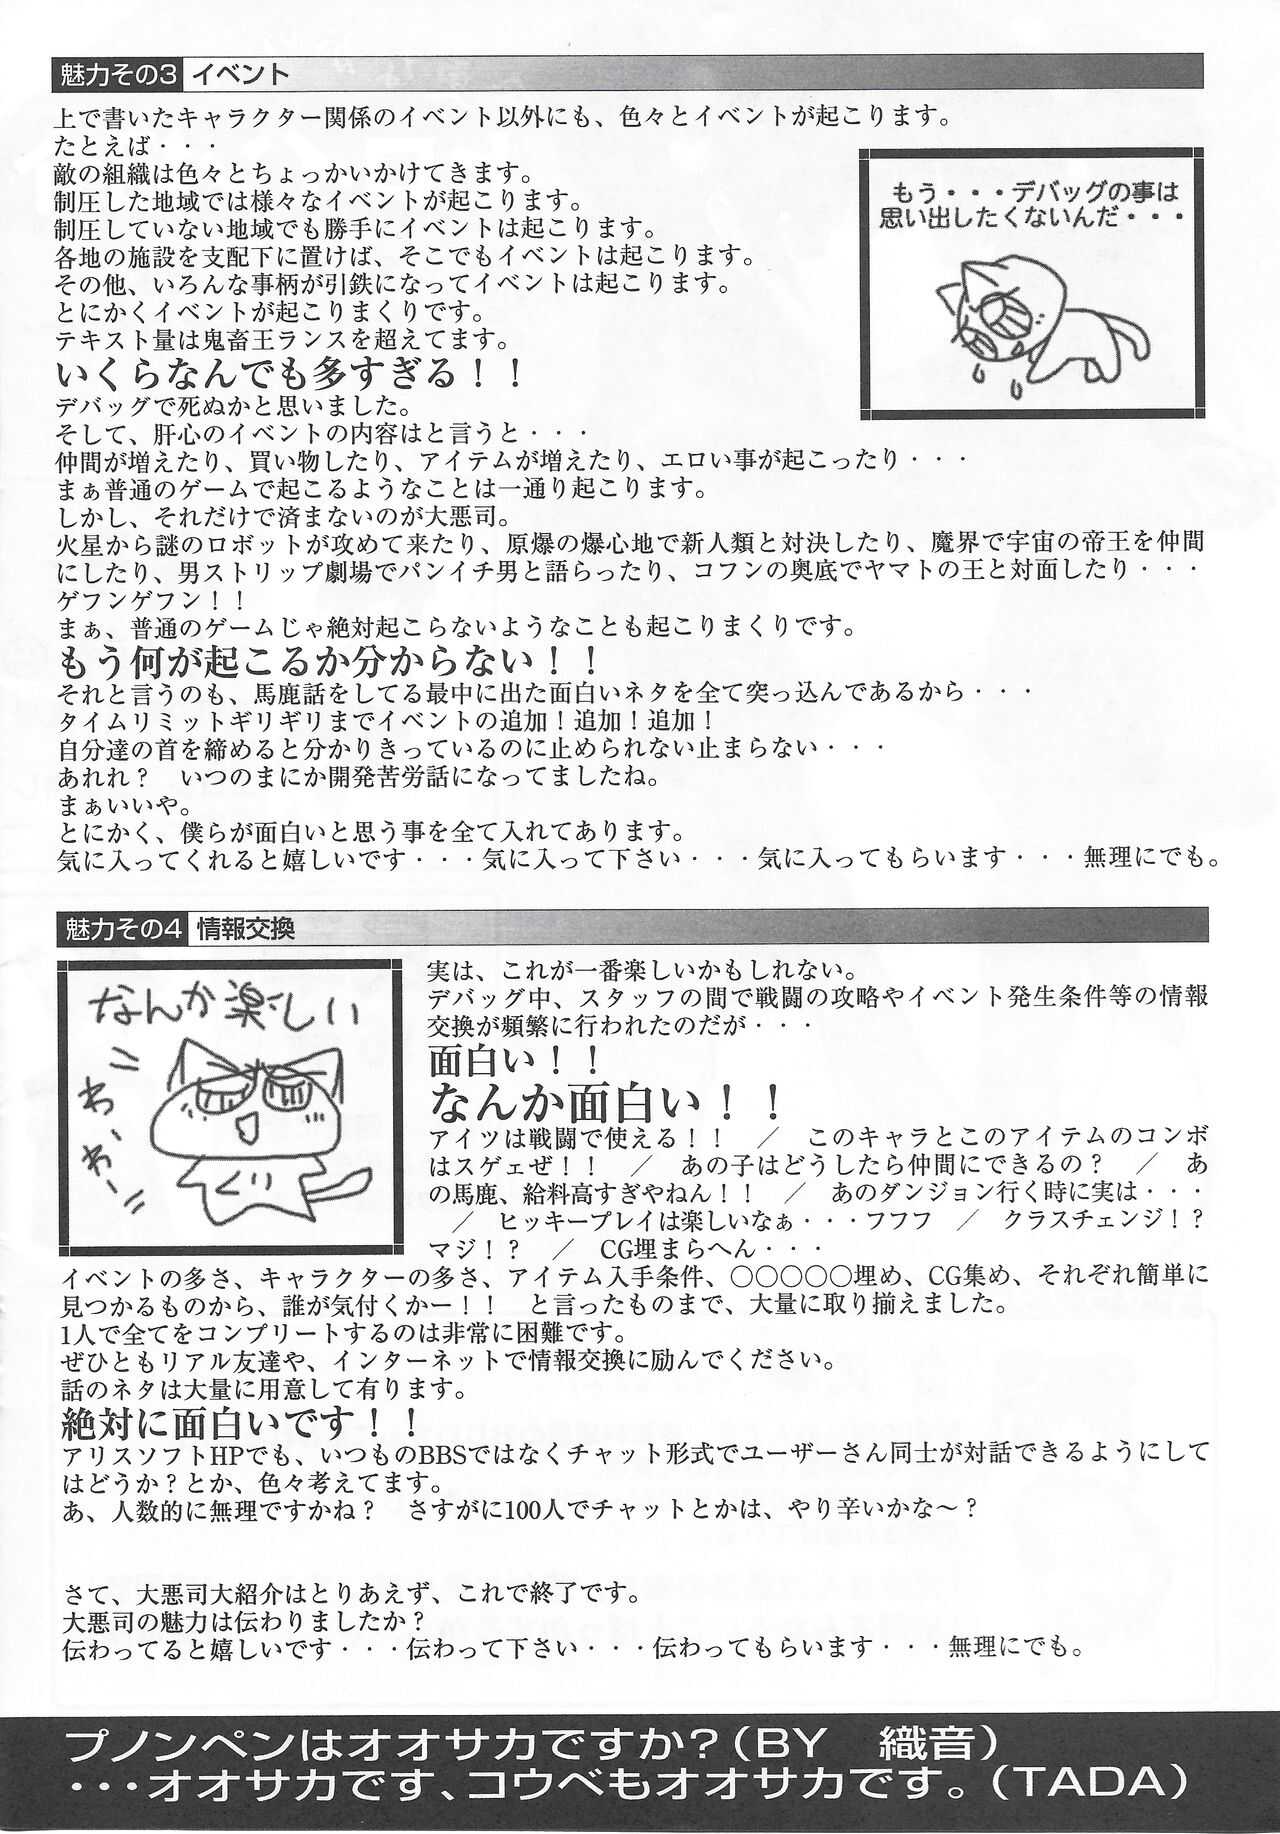 魅力その3 イベント
上で書いたキャラクター関係のイベント以外にも、色々とイベントが起こります。
たとえば・・・
敵の組織は色々とちょっかいかけてきます。
制圧した地域では様々なイベントが起こります。
制圧していない地域でも勝手にイベントは起こります。
各地の施設を支配下に置けば、そこでもイベントは起こります。
その他、いろんな事柄が引鉄になってイベントは起こります。
とにかくイベントが起こりまくりです。
テキスト量は鬼畜王ランスを超えてます。
いくらなんでも多すぎる！！
デバッグで死ぬかと思いました。
そして、肝心のイベントの内容はと言うと・・・
仲間が増えたり、買い物したり、アイテムが増えたり、エロい事が起こったり・・・
まぁ普通のゲームで起こるようなことは一通り起こります。
しかし、それだけで済まないのが大悪司。
火星から謎のロボットが攻めて来たり、原爆の爆心地で新人類と対決したり、魔界で宇宙の帝王を仲間
にしたり、男ストリップ劇場でパンイチ男と語らったり、コフンの奥底でヤマトの王と対面したり・・・
ゲフンゲフン！！
まぁ、普通のゲームじゃ絶対起こらないようなことも起こりまくりです。
もう何が起こるか分からない！！
それと言うのも、馬鹿話をしてる最中に出た面白いネタを全て突っ込んであるから・・・
タイムリミットギリギリまでイベントの追加！追加！追加！
自分達の首を締めると分かりきっているのに止められない止まらない・・・
あれれ？　いつのまにか開発苦労話になってましたね。
まぁいいや。
とにかく、僕らが面白いと思う事を全て入れてあります。
気に入ってくれると嬉しいです・・・気に入って下さい・・・気に入ってもらいます・・・無理にでも。
もう・・・デバッグの事は
思い出したくないんだ・・・
魅力その4 情報交換
なんか楽しい
わーわー
くり
実は、これが一番楽しいかもしれない。
デバッグ中、スタッフの間で戦闘の攻略やイベント発生条件等の情報
交換が頻繁に行われたのだが・・・
面白い！！
なんか面白い！！
アイツは戦闘で使える！！　／　このキャラとこのアイテムのコンボ
はスゲェぜ！！　／　あの子はどうしたら仲間にできるの？　／　あ
の馬鹿、給料高すぎやねん！！　／　あのダンジョン行く時に実は・・・
／　ヒッキープレイは楽しいなぁ・・・フフフ　／　クラスチェンジ！？
マジ！？　／　CG埋まらへん・・・
イベントの多さ、キャラクターの多さ、アイテム入手条件、○○○○○埋め、CG集め、それぞれ簡単に
見つかるものから、誰が気付くかー！！　と言ったものまで、大量に取り揃えました。
1人で全てをコンプリートするのは非常に困難です。
ぜひともリアル友達や、インターネットで情報交換に励んでください。
話のネタは大量に用意して有ります。
絶対に面白いです！！
アリスソフトHPでも、いつものBBSではなくチャット形式でユーザーさん同士が対話できるようにして
はどうか？とか、色々考えてます。
あ、人数的に無理ですかね？　さすがに100人でチャットとかは、やり辛いかな～？
さて、大悪司大紹介はとりあえず、これで終了です。
大悪司の魅力は伝わりましたか？
伝わってると嬉しいです・・・伝わって下さい・・・伝わってもらいます・・・無理にでも。
プノンペンはオオサカですか？（BY　織音）
・・・オオサカです、コウベもオオサカです。（TADA）